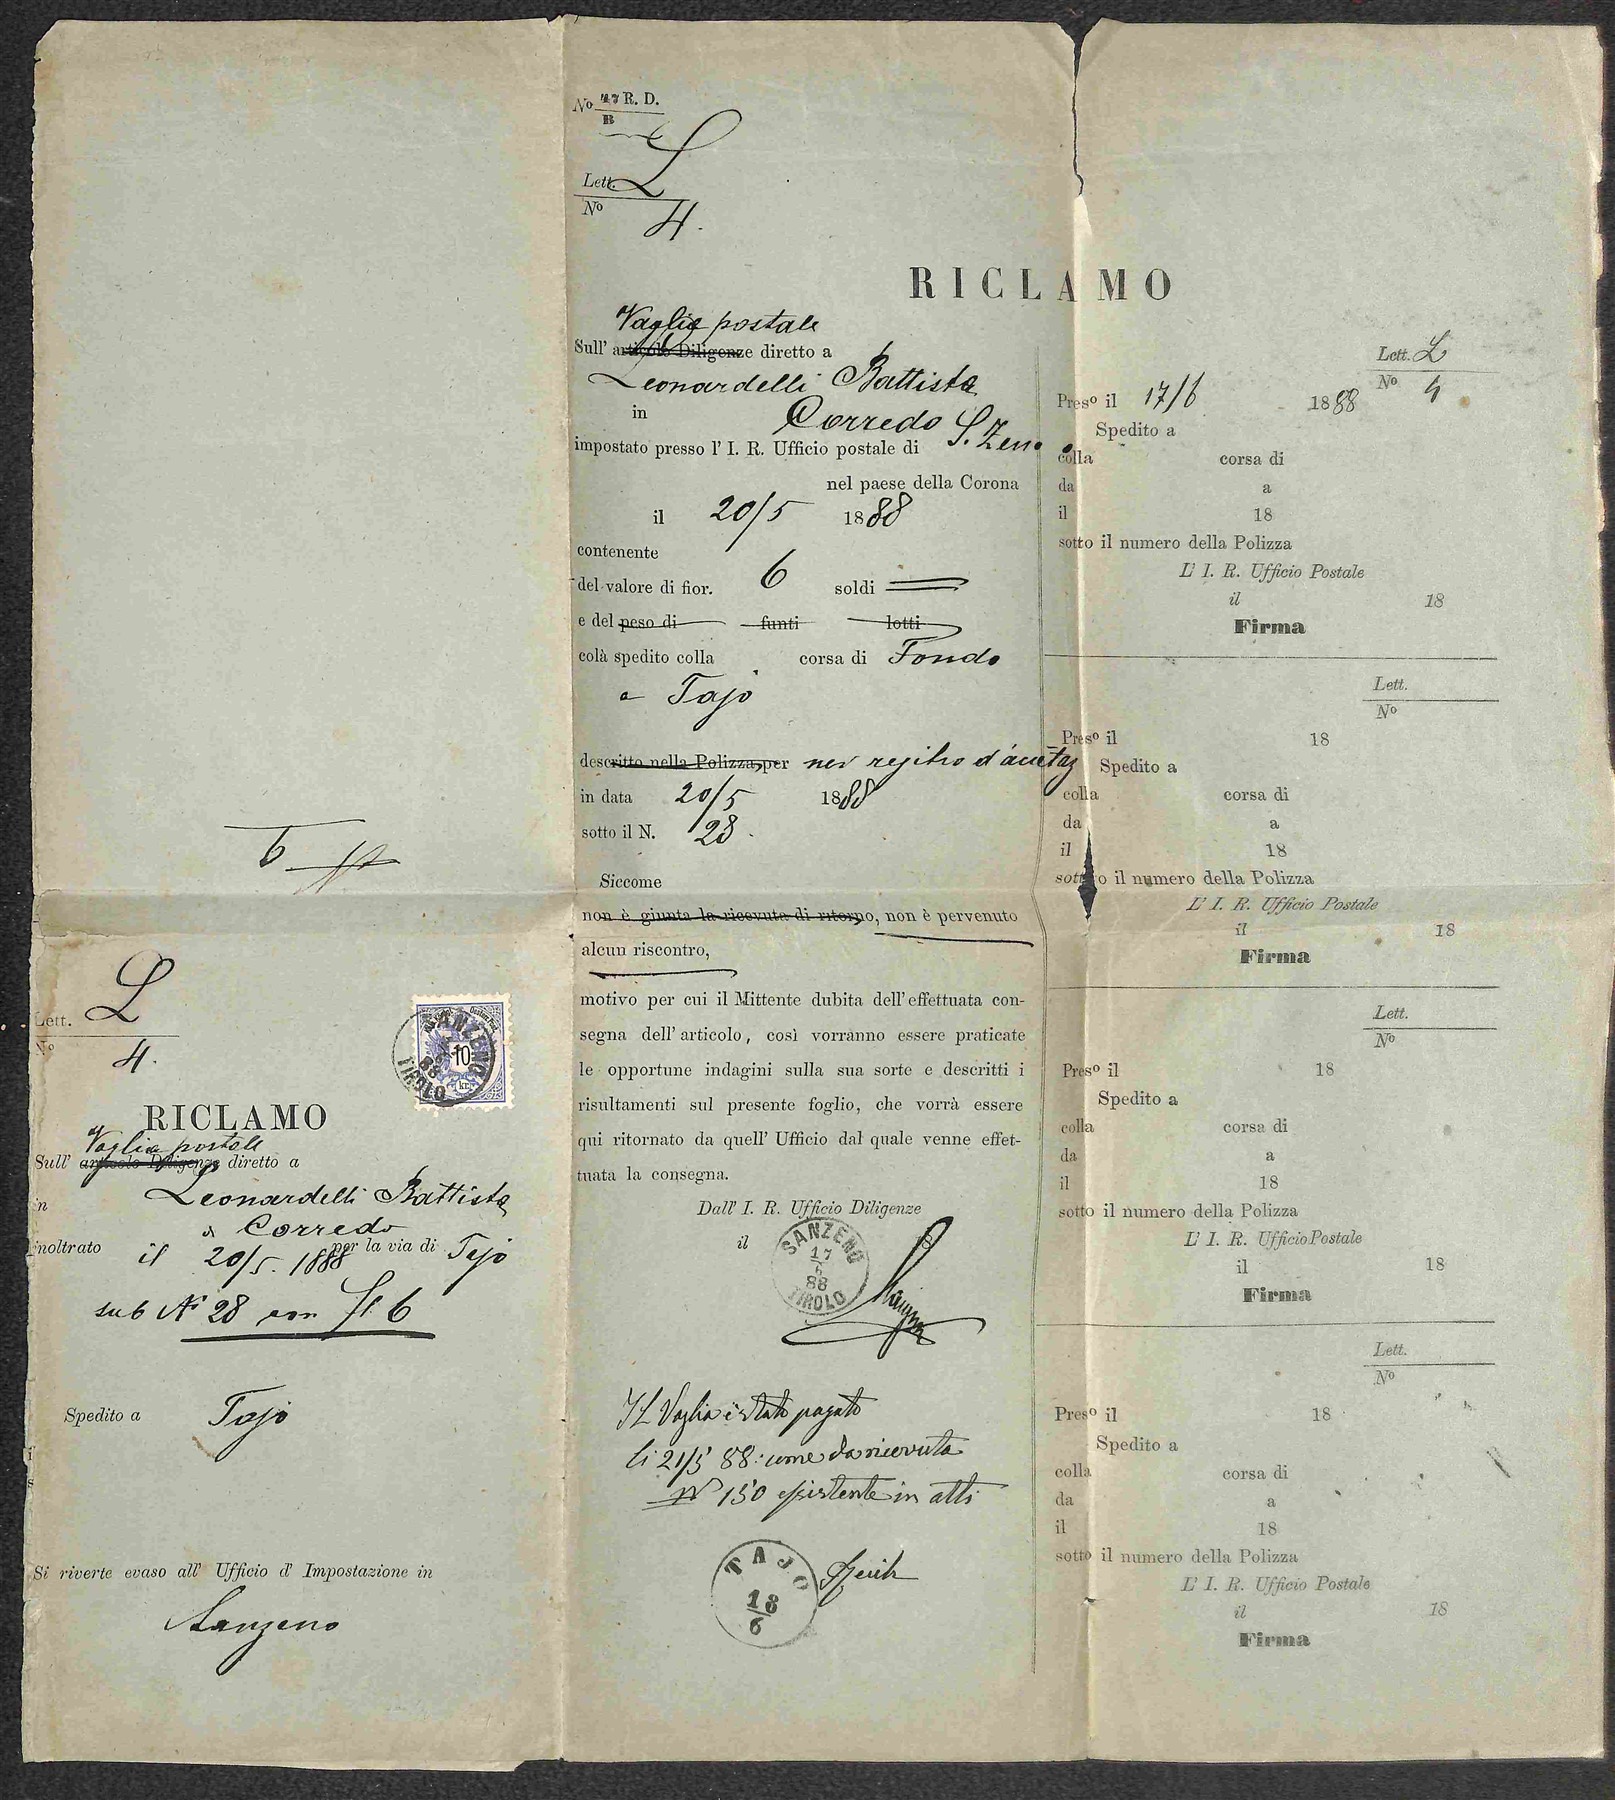 No 47 R. D.
B
Lett. L
No 4.
RICLAMO
Vaglia postale
Sull' articolo Diligenze diretto a
Leonardelli Battista
in Corredo
impostato presso l' I. R. Ufficio postale di S. Zeno
nel paese della Corona
il 20/5 1888
contenente
del valore di fior. 6 soldi
e del peso di funti lotti
colà spedito colla corsa di Fondo
a Tajo
descritto nella Polizza, per nel registro d'accettaz
in data 20/5 1888
sotto il N. 28.
Siccome
non è giunta la ricevuta di ritorno, non è pervenuto
alcun riscontro,
motivo per cui il Mittente dubita dell' effettuata con-
segna dell' articolo, così vorranno essere praticate
le opportune indagini sulla sua sorte e descritti i
risultamenti sul presente foglio, che vorrà essere
qui ritornato da quell' Ufficio dal quale venne effet-
tuata la consegna.
Dall' I. R. Ufficio Diligenze
il 18
SANZENO
17
6
88
TIROLO
Il Vaglia è stato pagato
li 21/5 88: come da ricevuta
No 150 esistente in atti
TAJO
18
6
Lett. L
No 4
Preso il 17/6 1888
Spedito a
colla corsa di
da a
il 18
sotto il numero della Polizza
L' I. R. Ufficio Postale
il 18
Firma
Lett.
No
Preso il 18
Spedito a
colla corsa di
da a
il 18
sotto il numero della Polizza
L' I. R. Ufficio Postale
il 18
Firma
Lett.
No
Preso il 18
Spedito a
colla corsa di
da a
il 18
sotto il numero della Polizza
L' I. R. Ufficio Postale
il 18
Firma
Lett.
No
Preso il 18
Spedito a
colla corsa di
da a
il 18
sotto il numero della Polizza
L' I. R. Ufficio Postale
il 18
Firma
Lett. L
No 4.
SANZENO
88
TIROLO
10
kr.
RICLAMO
Vaglia postale
Sull' articolo Diligenze diretto a
in Leonardelli Battista
a Corredo
inoltrato il 20/5. 1888 per la via di Tajo
sub No 28 con fl. 6
Spedito a Tajo
Si riverte evaso all' Ufficio d' Impostazione in
Sanzeno